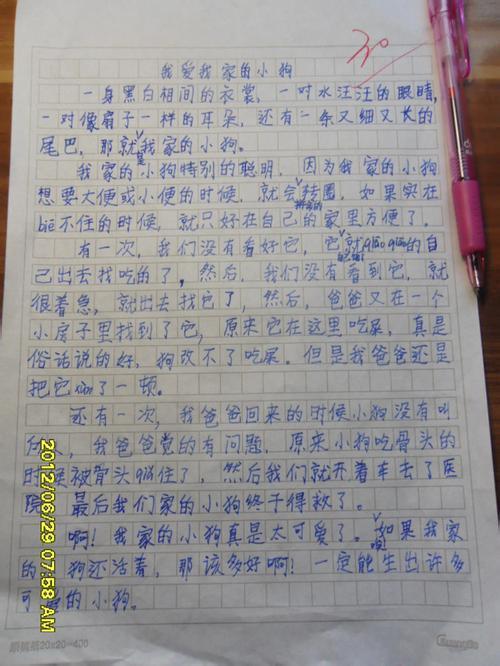 30
我爱我家的小狗
一身黑白相间的衣裳，一对水汪汪的眼睛，
一对像扇子一样的耳朵，还有一条又细又长的
尾巴，那就是我家的小狗。
我家的小狗特别的聪明，因为我家的小狗
想要大便或小便的时候，就会拼命的转圈，如果实在
bie不住的时候，就只好在自己的家里方便了。
有一次，我们没有看好它，它就的自
己出去找吃的了，然后，我们没有看到它，就
很着急，就出去找它了，然后，爸爸又在一个
小房子里找到了它，原来它在这里吃屎，真是
俗话说的好，狗改不了吃屎。但是我爸爸还是
把它了一顿。
还有一次，我爸爸回来的时候小狗没有叫
我爸爸觉的有问题，原来小狗吃骨头的
时候被骨头qia住了，然后我们就开着车去了医
院，最后我们家的小狗终于得救了。
啊！我家的小狗真是太可爱了。如果我家
的狗还活着，那该多好啊！一定能生出许多
可的小狗。
原稿纸20x20=400
Guangbo
2012/06/29 07:58 AM